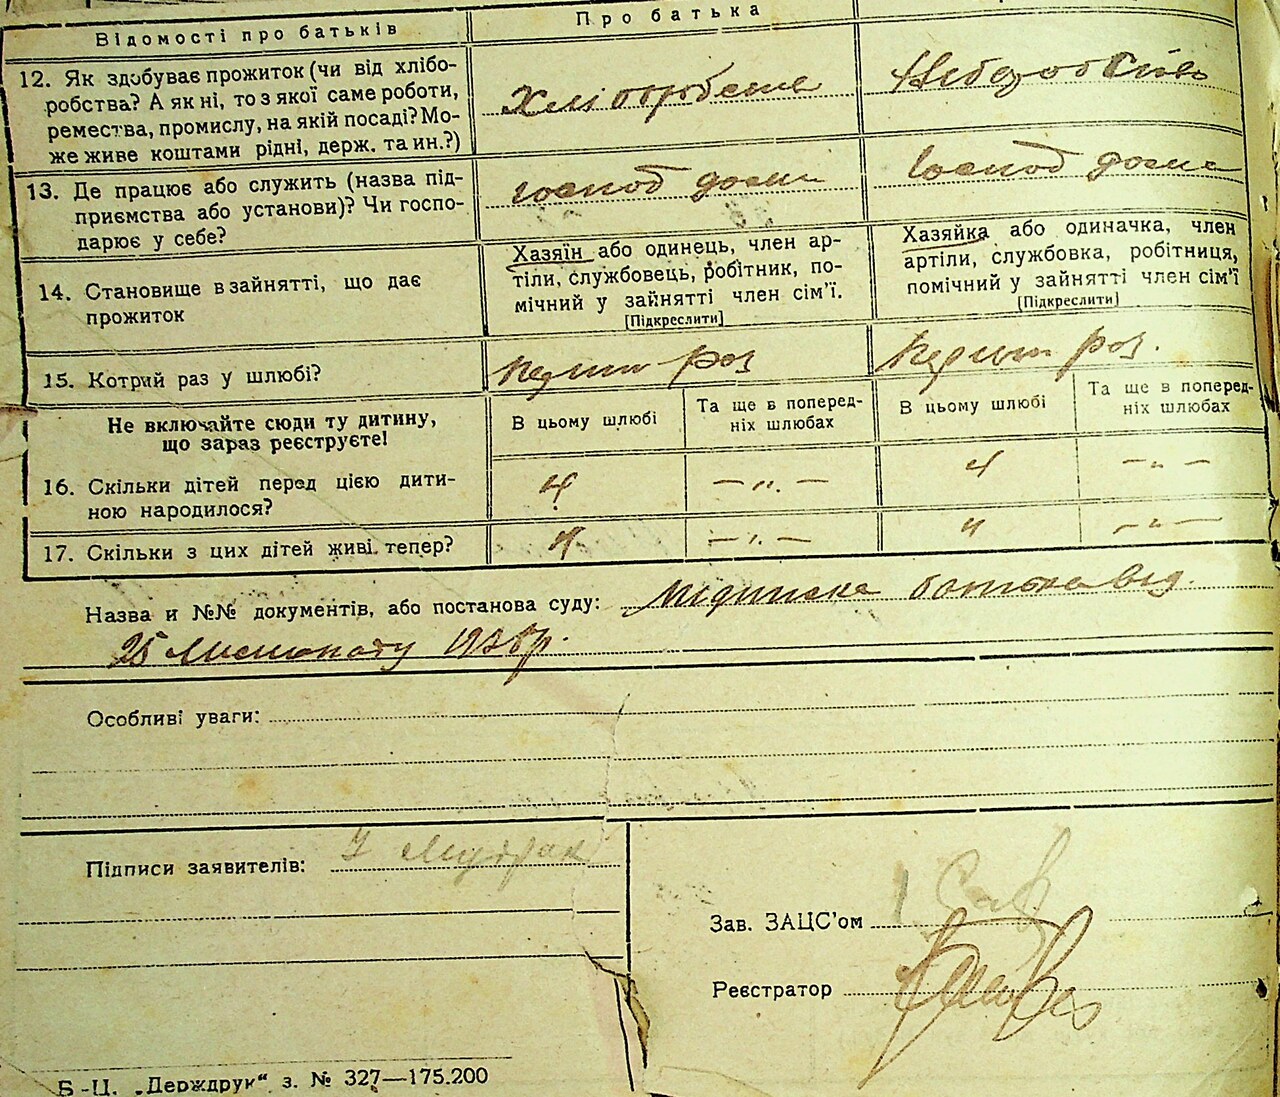 Відомості про батьків
Про батька
12. Як здобуває прожиток (чи від хлібо-
робства? А як ні, то з якої саме роботи,
ремества, промислу, на якій посаді? Мо-
же живе коштами рідні, держ. та ин.?)
Хліборобства
13. Де працює або служить (назва під-
приємства або установи)? Чи госпо-
дарює у себе?
господ дома
господ дома
14. Становище в зайнятті, що дає
прожиток
Хазяїн або одинець, член ар-
тіли, службовець, робітник, по-
мічний у зайнятті член сім'ї.
[Підкреслити]
Хазяйка або одиначка, член
артіли, службовка, робітниця,
помічний у зайнятті член сім'ї
[Підкреслити]
15. Котрий раз у шлюбі?
раз
раз.
Не включайте сюди ту дитину,
що зараз реєструєте!
В цьому шлюбі
Та ще в поперед-
ніх шлюбах
В цьому шлюбі
Та ще в поперед-
ніх шлюбах
16. Скільки дітей перед цією дити-
ною народилося?
4
— „ —
4
— „ —
17. Скільки з цих дітей живі тепер?
4
— „ —
4
— „ —
Назва и №№ документів, або постанова суду: батька від.
25 Листопаду
Особливі уваги:
Підписи заявителів:
Зав. ЗАЦС'ом
Реєстратор
Б-Ц. „Держдрук“ з. № 327—175.200